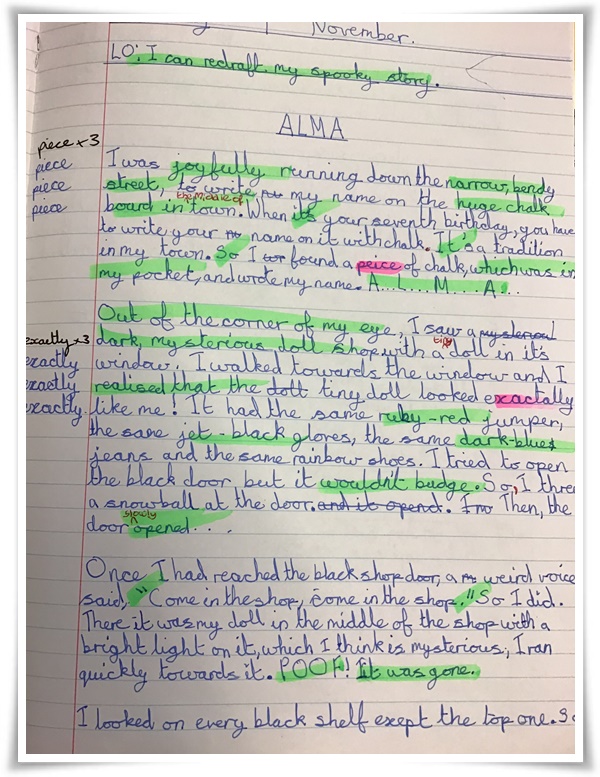 November.
LO: I can redraft my spooky story.
ALMA
piece x 3
piece
piece
piece
I was joyfully running down the narrow, bendy
street, to write my name on the huge chalk
the middle of
board in town. When it's your seventh birthday, you have
to write your name on it with chalk. It's a tradition
in my town. So I found a peice of chalk, which was in
my pocket, and wrote my name. A... L... M... A...
exactly x 3
exactly
exactly
exactly
Out of the corner of my eye, I saw a mysterious
dark, mysterious doll shop with a tiny doll in it's
window. I walked towards the window and I
realised that the doll tiny doll looked exactally
like me! It had the same ruby-red jumper,
the same jet-black gloves, the same dark-blue
jeans and the same rainbow shoes. I tried to open
the black door but it wouldn't budge. So, I threw
a snowball at the door. and it opend. Then, the
door slowly opened....
Once I had reached the black shop door, a weird voice
said, "Come in the shop, come in the shop." So I did.
There it was my doll in the middle of the shop with a
bright light on it, which I think is mysterious, I ran
quickly towards it. POOF! It was gone.
I looked on every black shelf exept the top one. So